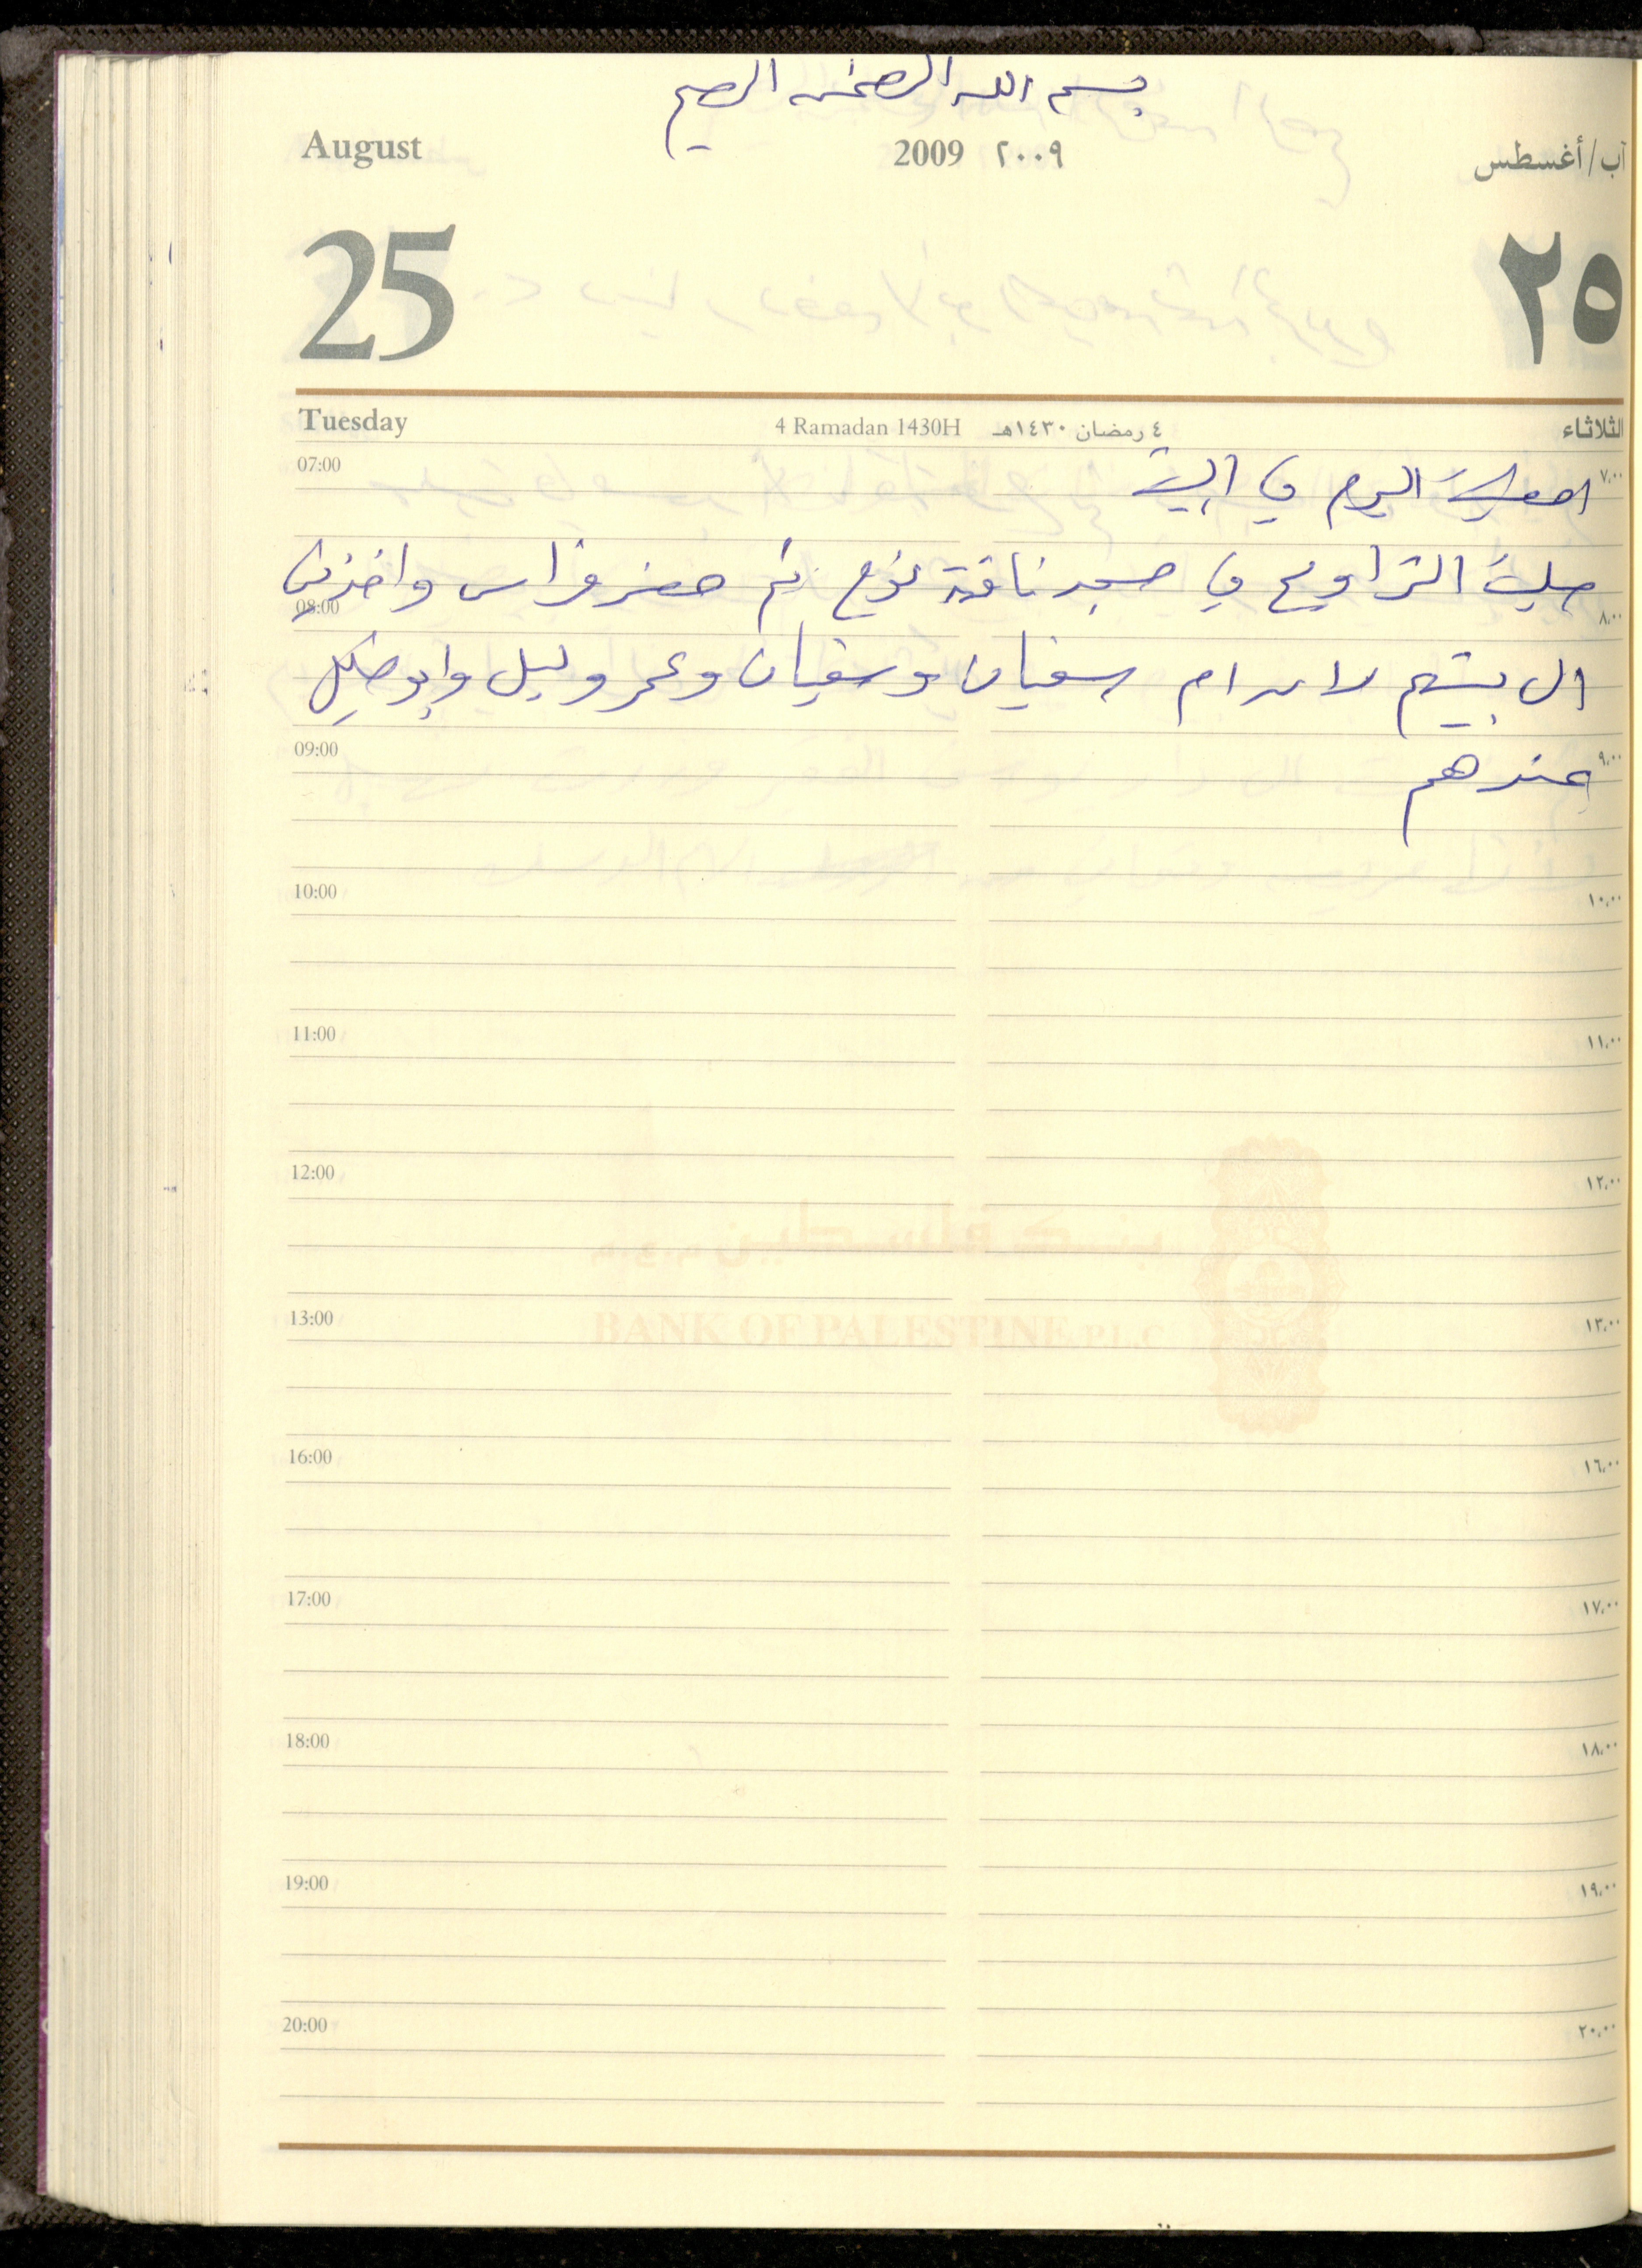 بسم الله الرحمن الرحيم
August 2009 ٢٠٠٩ آب/أغسطس
25 ٢٥
Tuesday 4 Ramadan 1430H ٤ رمضان ١٤٣٠هـ الثلاثاء
07:00 ٧،٠٠
اليوم في البيت
صليت التراويح في مسجد ناقة نوح ثم حضر فراس واخذني
08:00 ٨،٠٠
الى بيتهم سفيان وسفيان وعمر وليل وابو
09:00 ٩،٠٠
عندهم
10:00 ١٠،٠٠
11:00 ١١،٠٠
12:00 ١٢،٠٠
بنك فلسطين
13:00 ١٣،٠٠
BANK OF PALESTINE P.L.C
16:00 ١٦،٠٠
17:00 ١٧،٠٠
18:00 ١٨،٠٠
19:00 ١٩،٠٠
20:00 ٢٠،٠٠